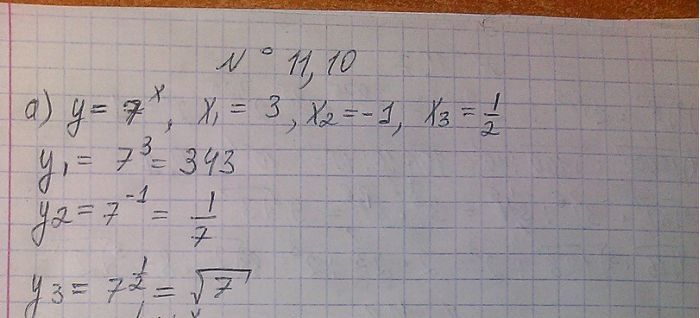 N° 11,10
а) y = 7^x, x₁ = 3, x₂ = -1, x₃ = 1/2
y₁ = 7³ = 343
y₂ = 7⁻¹ = 1/7
y₃ = 7^(1/2) = √7